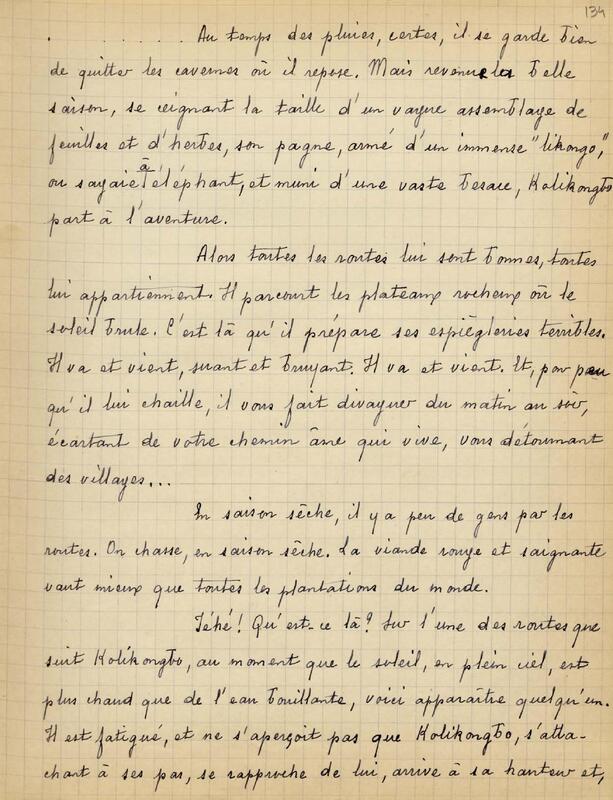 134
. . . . . . . . Au temps des pluies, certes, il se garde bien
de quitter les cavernes où il repose. Mais revenue la belle
saison, se ceignant la taille d'un vague assemblage de
feuilles et d'herbes, son pagne, armé d'un immense "likongo,"
ou sagaie à éléphant, et muni d'une vaste besace, Kolikongbo
part à l'aventure.
Alors toutes les routes lui sont bonnes, toutes
lui appartiennent. Il parcourt les plateaux rocheux où le
soleil brule. C'est là qu'il prépare ses espiègleries terribles.
Il va et vient, suant et bruyant. Il va et vient. Et, pour peu
qu'il lui chaille, il vous fait divaguer du matin au soir,
écartant de votre chemin âme qui vive, vous détournant
des villages...
En saison sêche, il y a peu de gens par les
routes. On chasse, en saison sêche. La viande rouge et saignante
vaut mieux que toutes les plantations du monde.
Iéhé! Qu'est-ce là? Sur l'une des routes que
suit Kolikongbo, au moment que le soleil, en plein ciel, est
plus chaud que de l'eau bouillante, voici apparaître quelqu'un.
Il est fatigué, et ne s'aperçoit pas que Kolikongbo, s'atta-
chant à ses pas, se rapproche de lui, arrive à sa hauteur et,